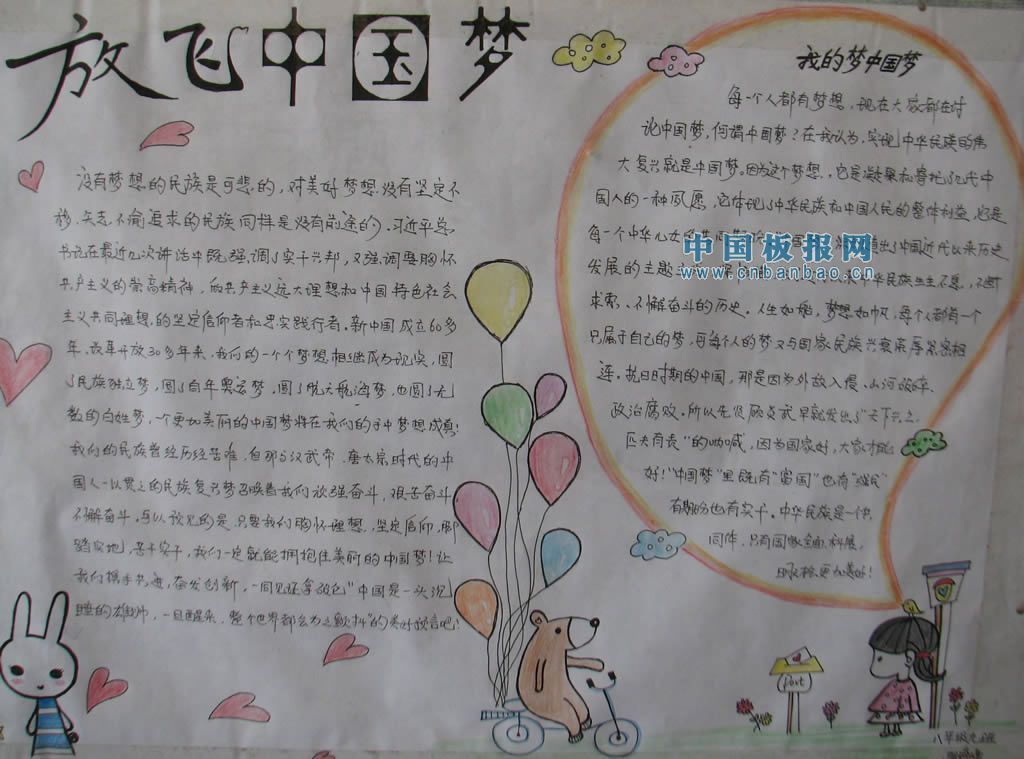 放飞中国梦
没有梦想的民族是可悲的,对美好梦想没有坚定不
移、矢志不渝追求的民族同样是没有前途的。习近平总
书记在最近几次讲话中既强调了实干兴邦,又强调要胸怀
共产主义的崇高精神,而共产主义远大理想和中国特色社会
主义共同理想的坚定信仰者和忠实践行者。新中国成立60多
年、改革开放30多年来,我们的一个个梦想相继成为现实,圆
了民族独立梦,圆了百年奥运梦,圆了航天航海梦,也圆了无
数的百姓梦,一个更加美丽的中国梦将在我们的手中梦想成真!
我们的民族曾经历经苦难,但那与汉武帝、唐太宗时代的中
国人一以贯之的民族复兴梦召唤着我们放强奋斗,艰苦奋斗
不懈奋斗。可以预见的是,只要我们胸怀理想、坚定信仰,脚
踏实地、苦干实干,我们一定就能拥抱住美丽的中国梦!让
我们携手共进,奋发创新,一同见证拿破仑"中国是一头沉
睡的雄狮,一旦醒来,整个世界都会为之颤抖"的美好预言吧!
我的梦中国梦
每一个人都有梦想,现在大家都在讨
论中国梦,何谓中国梦?在我认为,实现中华民族的伟
大复兴就是中国梦。因为这个梦想,它是凝聚和寄托了几代中
国人的一种夙愿,它体现了中华民族和中国人民的整体利益,也是
每一个中华儿女的共同
出了中国近代以来历史
发展的主题
来中华民族生生不息、不断
求索、不懈奋斗的历史。人生如船,梦想如帆,每个人都有一个
只属于自己的梦,而每个人的梦又与国家民族兴衰荣辱紧密相
连。抗日时期的中国,那是因为外敌入侵、山河破碎、
政治腐败。所以先贤顾炎武早就发出了"天下兴亡,
匹夫有责"的呐喊,因为国家好,大家才能
好!"中国梦"里既有"富国"也有"
有期盼也有实干。中华民族是一个共
同体,只有国家全面科展,
更加美好!
中国板报网
www.cnbanbao.cn
Post
八年级九班